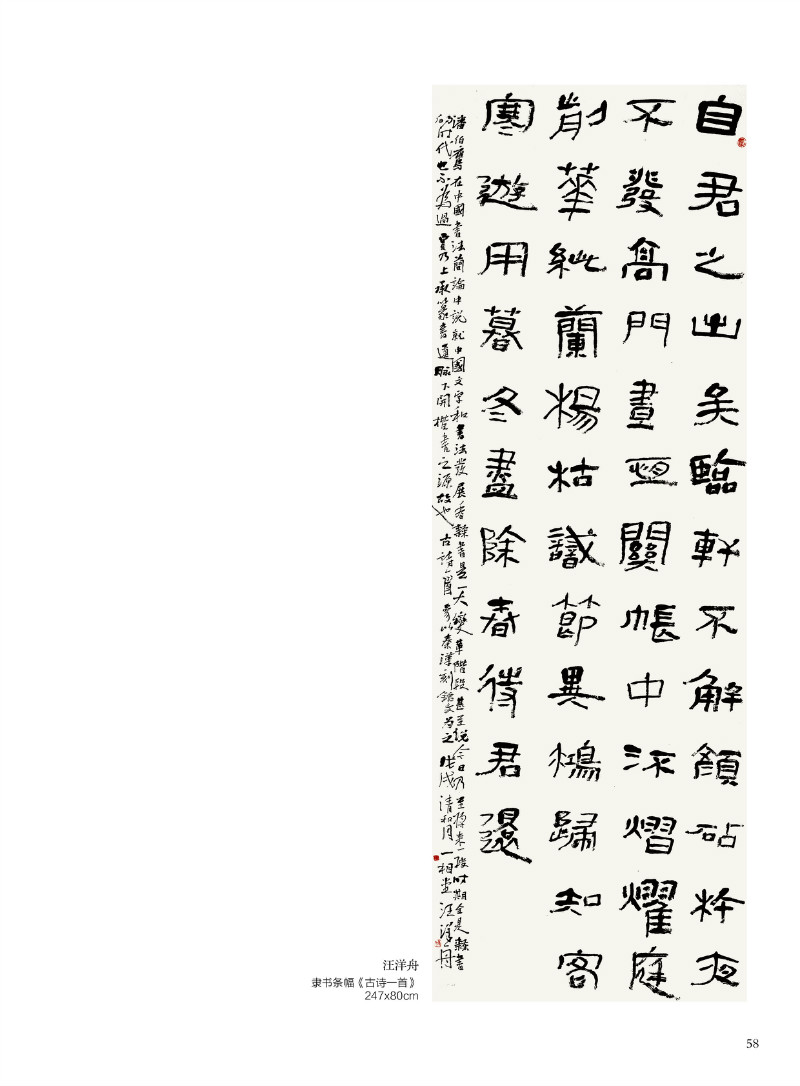 自君之出矣臨軒不解顏砧杵夜
不發高門晝恒關帳中流熠燿庭
前華紫蘭楊枯識節異鴻歸知客
寒遊用暮冬盡除春待君還
潘伯鷹在中國書法簡論中說就中國文字和書法發展看隸書是一大變革階段甚至說今日乃至將來一段時期全是隸書
的時代也不為過實乃上承篆書道脈下開楷書之源故也 古詩一首 參以秦漢刻銘文為之 戊戌清和月一相堂汪洋舟
汪洋舟
隶书条幅《古诗一首》
247x80cm
58